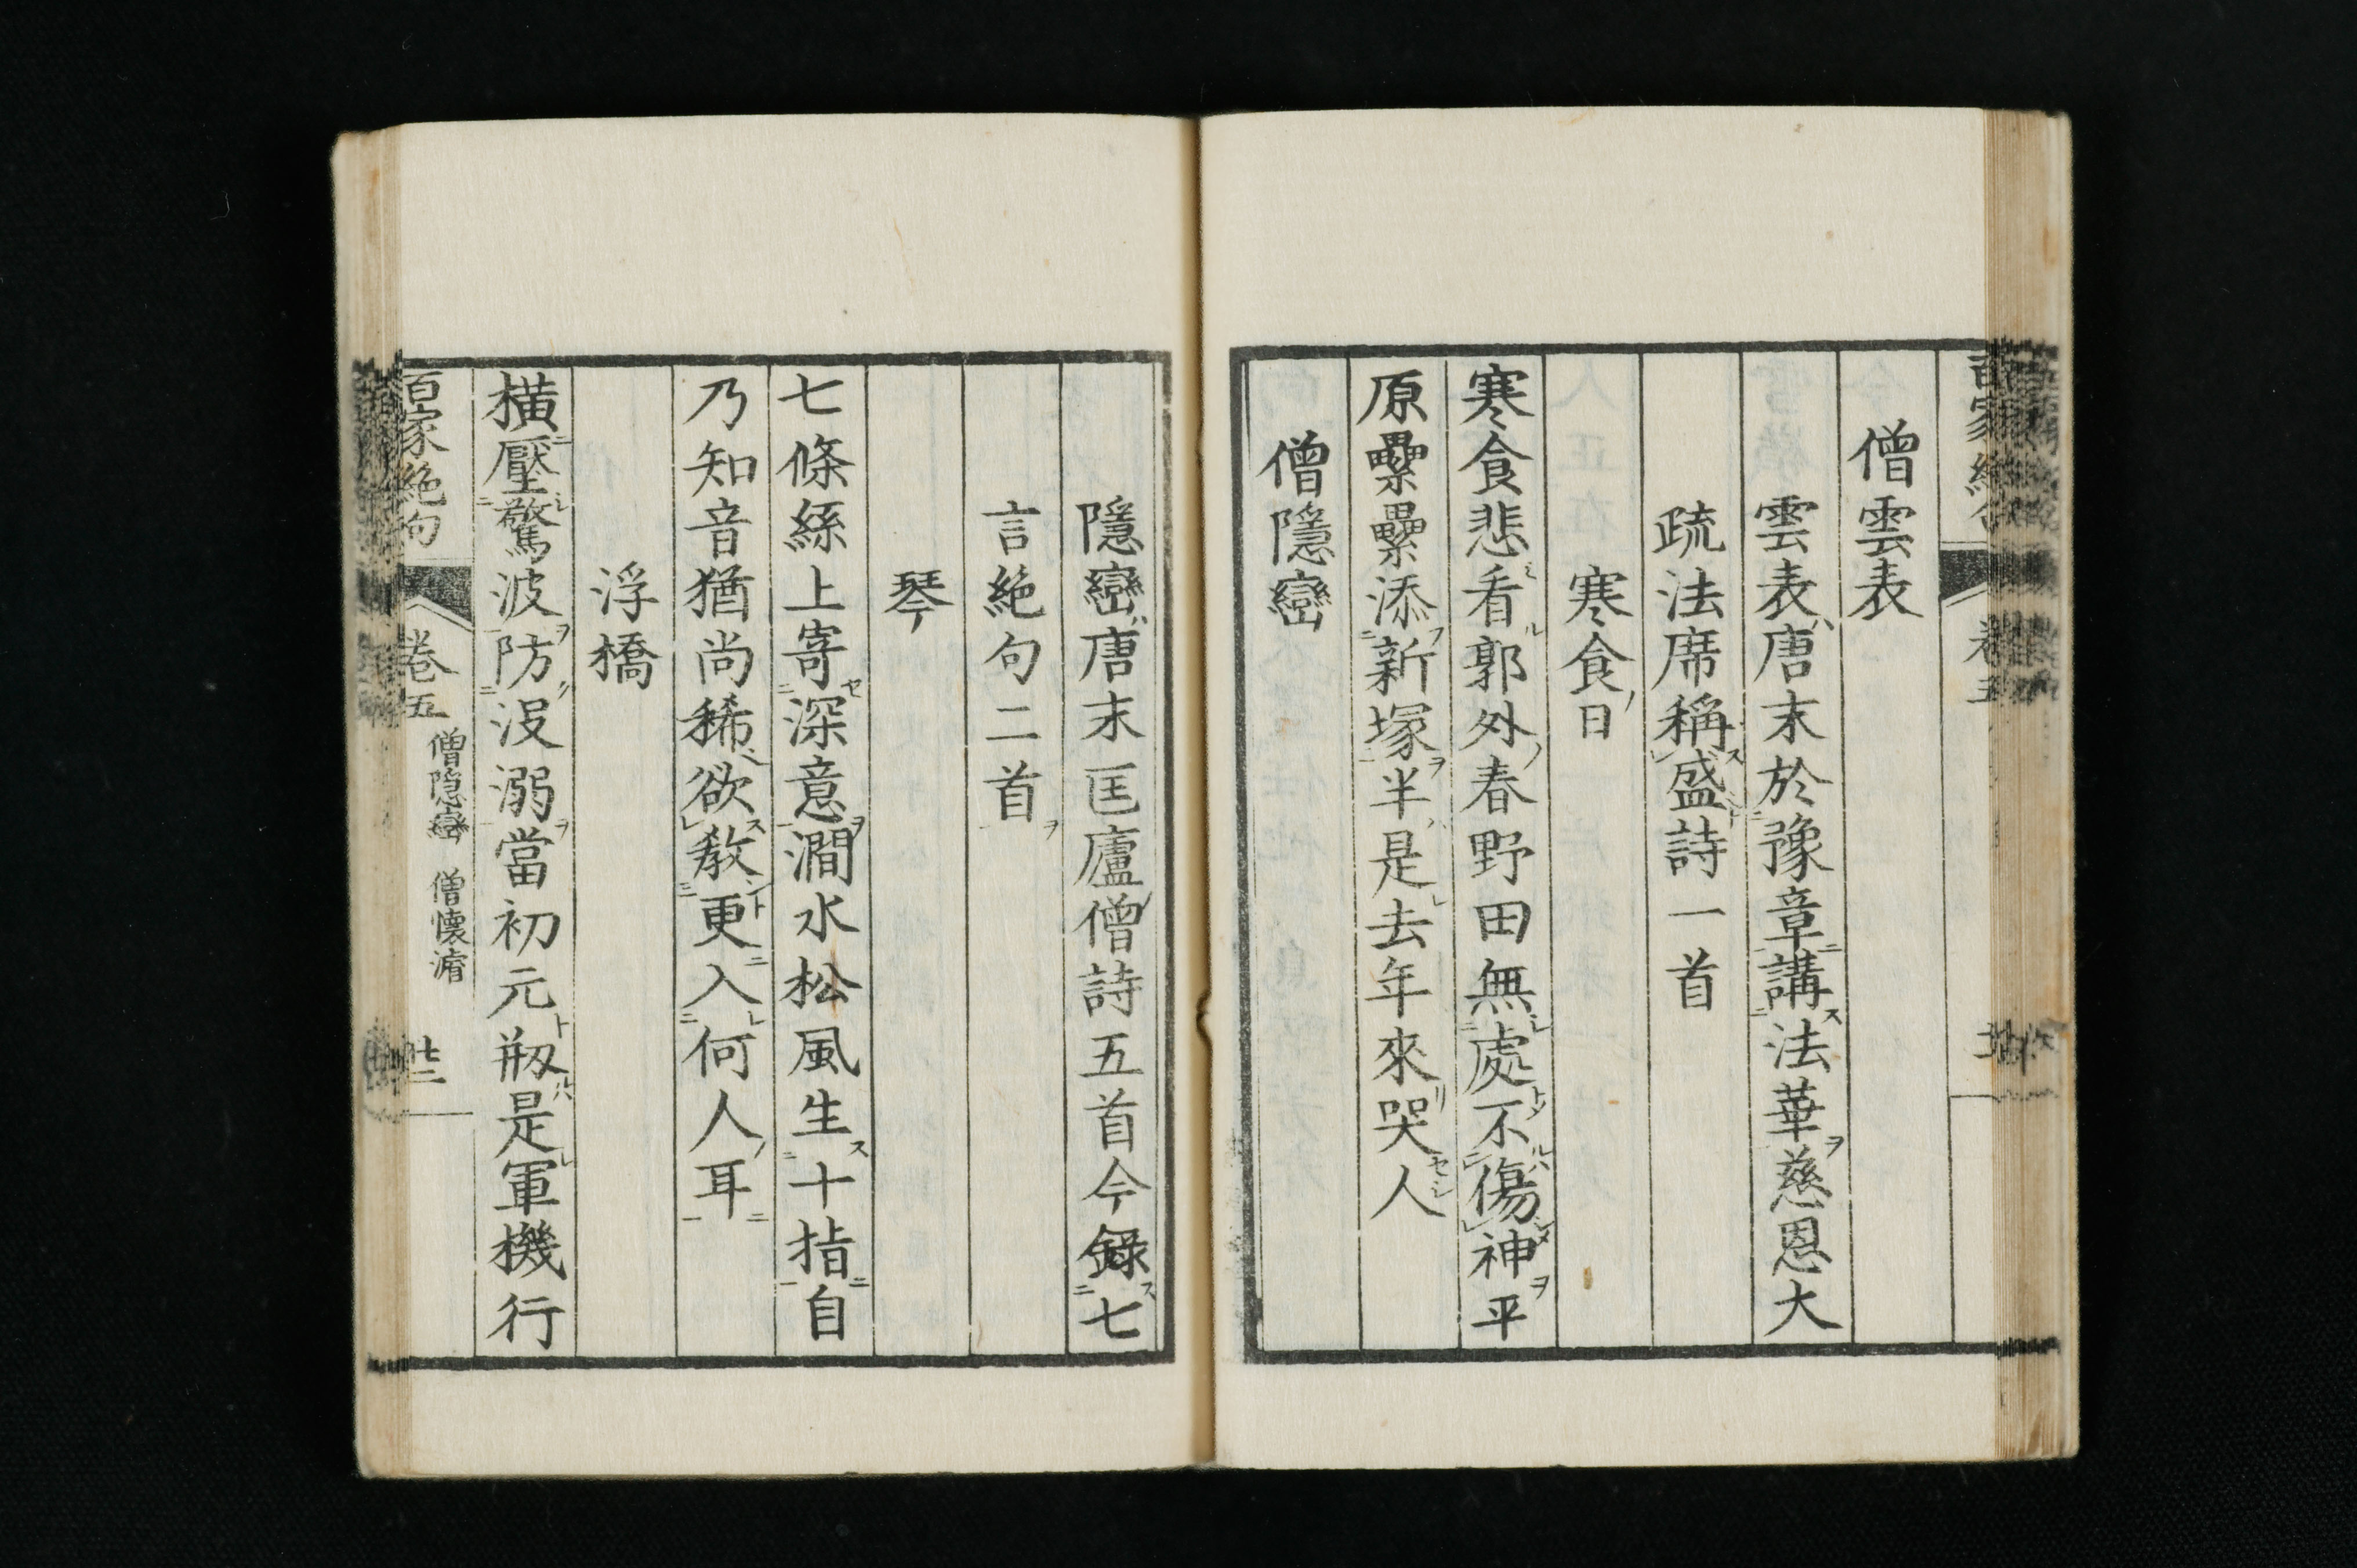 僧雲表
雲表唐末於豫章講法華慈恩大
疏法席稱盛詩一首
寒食日
寒食悲看郭外春野田無處不傷神平
原纍纍添新塚半是去年來哭人
僧隱巒
隱巒唐末匡廬僧詩五首今錄七
言絶句二首
琴
七條絲上寄深意澗水松風生十指自
乃知音猶尚稀欲教更入何人耳
浮橋
橫壓驚波防没溺當初元剏是軍機行
百家絶句 卷五 僧隱巒 僧懷濬 廿三